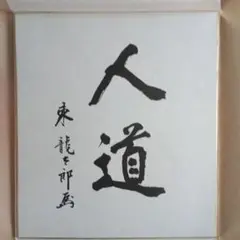 人道
東龍太郎